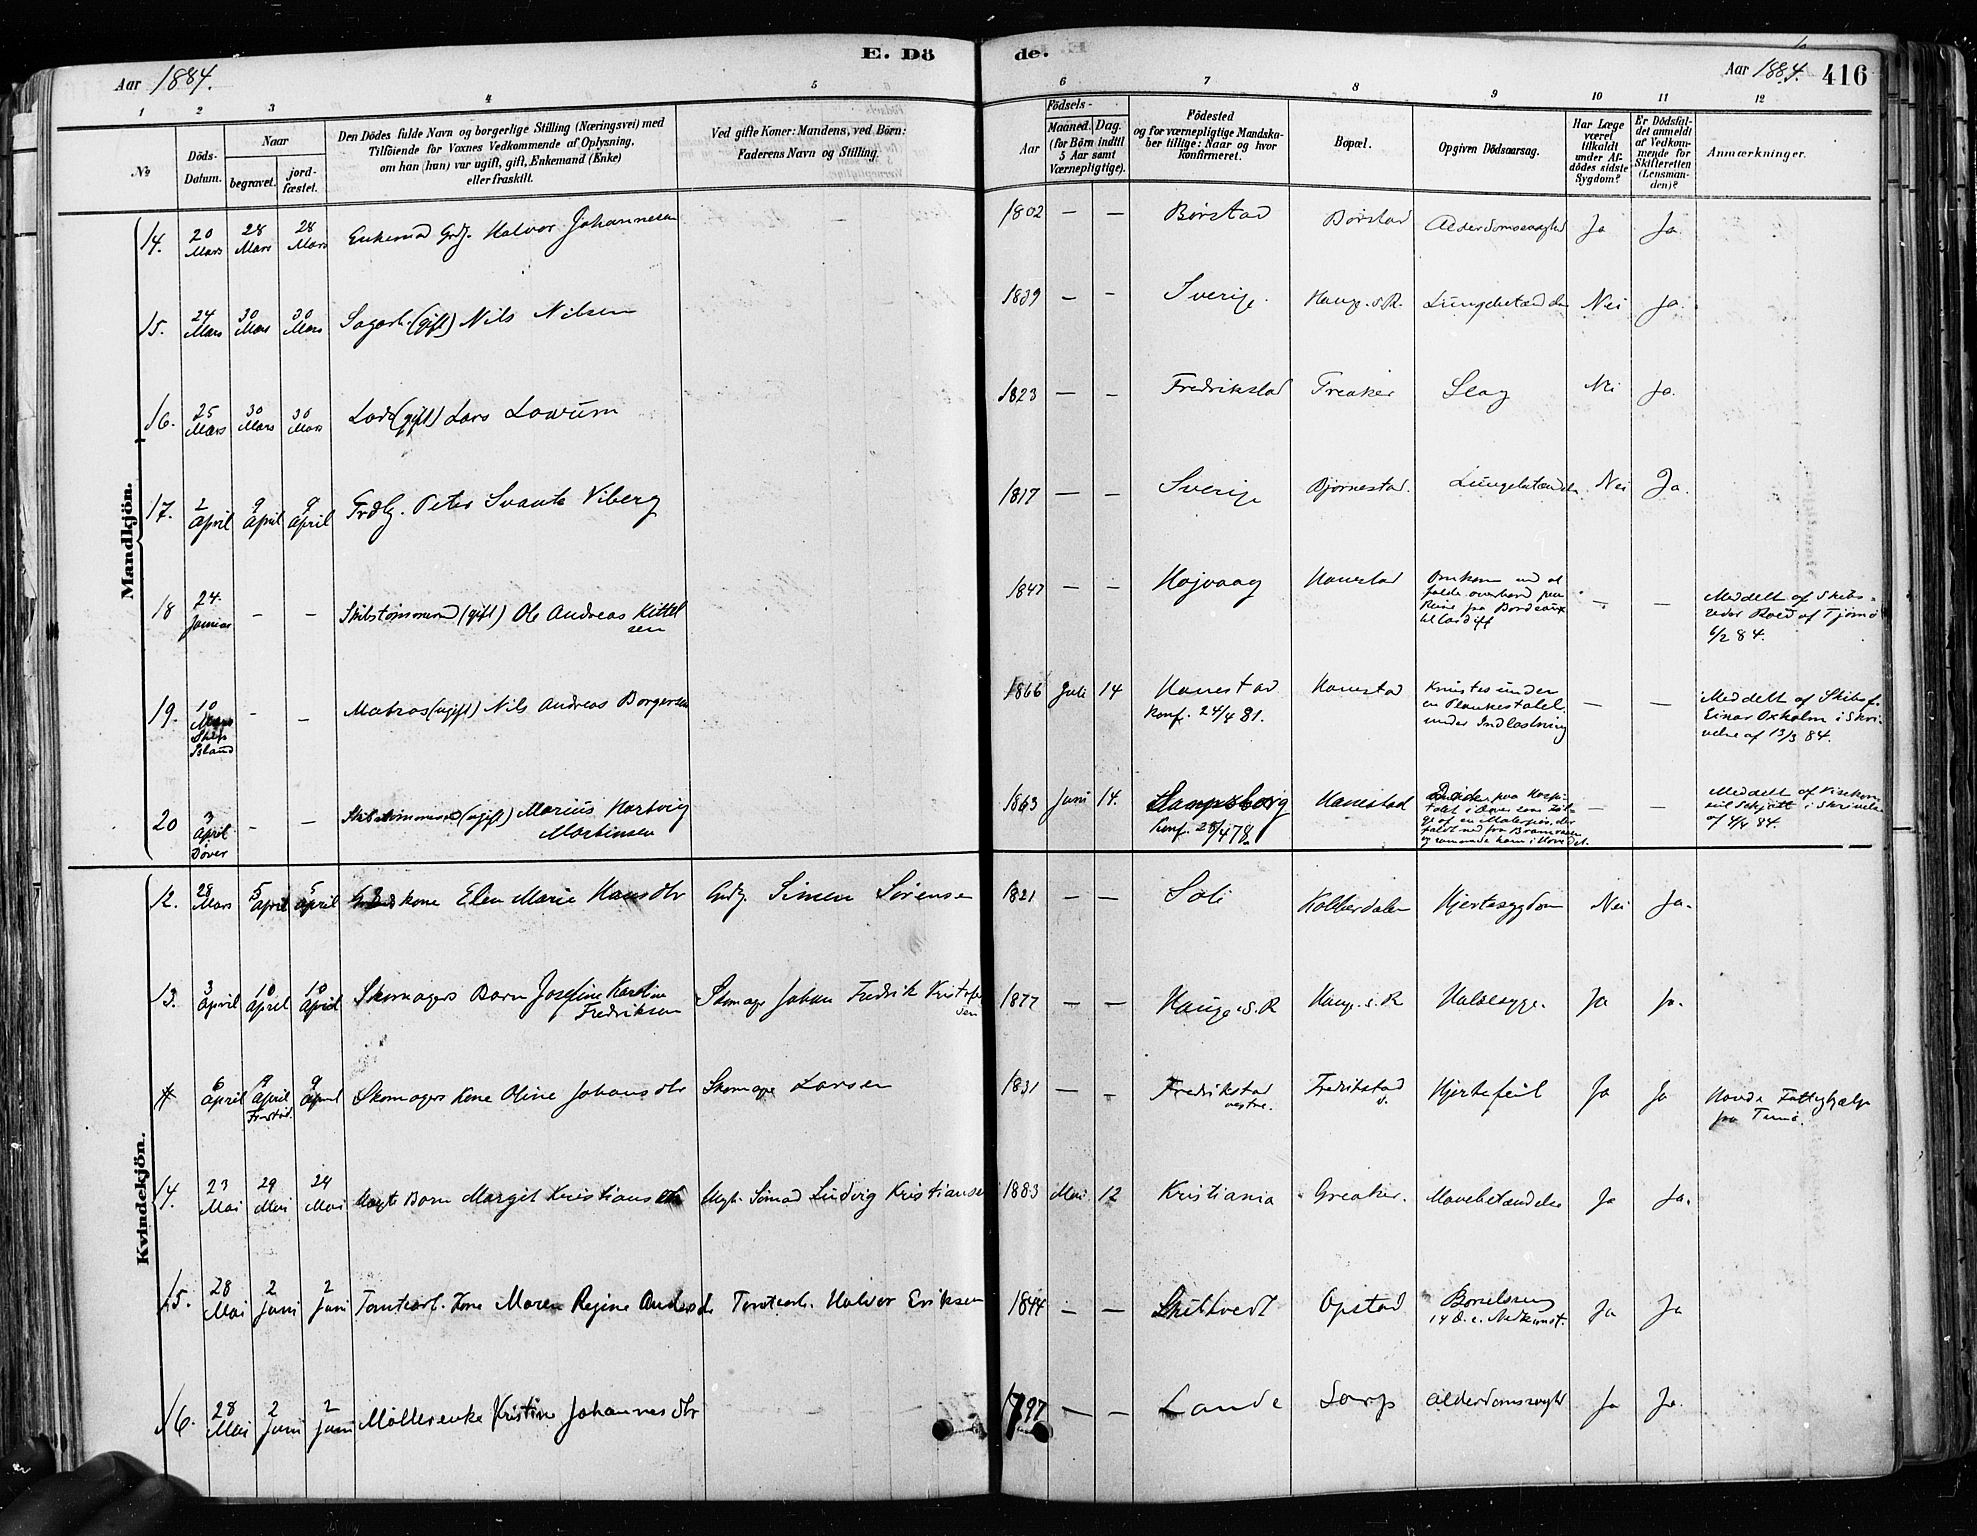 E. Dö
de.
Aar 1884.
Aar 1884. 416
1 2 3 4 5
6 7 8 9 10 11 12
No
Döds-
Datum.
Naar
begravet.
jord-
fæstet.
Den Dödes fulde Navn og borgerlige Stilling (Næringsvei) med
Tilföiende for Voxnes Vedkommende af Oplysning,
om han (hun) var ugift, gift, Enkemand (Enke)
eller fraskilt.
Ved gifte Koner: Mandens, ved Börn:
Faderens Navn og Stilling.
Födsels-
Aar
Maaned. Dag.
(for Börn indtil
5 Aar samt
Værnepligtige).
Födested
og for værnepligtige Mandska-
ber tillige: Naar og hvor
konfirmeret.
Bopæl.
Opgiven Dödsaarsag.
Har Læge
været
tilkaldt
under Af-
dödes sidste
Sygdom?
Er Dödsfal-
det anmeldt
af Vedkom-
mende for
Skifteretten
(Lensman-
den)?
Anmærkninger.
Mandkjön.
14. 20 Mars 28 Mars 28 Mars Enkemd Grdj. Halvor Johannesen 1802 — — Börstad Börstad Alderdomssvaghed Ja Ja.
15. 24 Mars 30 Mars 30 Mars Sagarb. (gift) Nils Nilsen 1839 — - Sverige. Hauge. s. R. Lungebetænd Nei Ja.
16. 25 Mars 30 Mars 30 Mars Lods (gift) Lars Lowum 1823 — - Fredrikstad Greaker Slag Nei Ja.
17. 2 April 9 April 9 April Peter Svante Viberg 1817 — — Sverige Björnestad. Lungebetænd Nei Ja.
18 24 Januar - - Skibstömmermd (gift) Ole Andreas Kittel
sen 1847 — — Höjvaag Hanestad Omkom ved at
falde overbord paa
Reise fra Bordeaux
til Cardiff — — Meddelt af Skibs-
reder Roed af Tjömö
6/2 84.
19. 10 Mars Ship Island - - Matros (ugift) Nils Andreas Borgersen 1866 Juli 14 Hanestad
Konf. 24/4 81. Hanestad Knustes under
en Plankestabel
under Indlastning — — Meddelt af Skibsf.
Einar Oxholm i Skri-
velse af 13/3 84.
20 3 April Dover - - Skibstömmermd (ugift) Marius Hartvig
Martinsen 1863 Juni 14. Sarpsborg
Konf. 28/4 78. Hanestad Döde paa Hospi-
talet i Dover som Föl-
ge af en der
faldt ned fra Bramraaen
og rammede ham i Hovedet. — — Meddelt af Visekon
sul i Skrivelse
af 4/4 84.
Kvindekjön.
12. 28 Mars 5 April 5 April kone Elen Marie Hansdtr Grdj. Simen Sörensen 1821 — — Soli Kolberdalen Hjertesygdom Nei Ja.
13. 3 April 10 April 10 April Skomagers Barn Josefine Karoline
Fredriksen Skomager Johan Fredrik Kristof
sen 1877 — — Hauge. s. R Hauge. s. R Halssyge. Ja Ja.
# 6 April 9 April Fredrikst. 9 April Skomagers Kone Oline Johansdtr Skomager Larsen 1831 — - Fredrikstad
vestre. Fredrikstad
v. Hjertefeil Ja Ja Havde Fattighjælp
fra Tunö.
14. 23 Mai 29 Mai 29 Mai Barn Margit Kristiansdtr Sömad Ludvig Kristiansen 1883 Mai 12 Kristiania Greaker. Mavebetændelse Ja Ja.
15. 28 Mai 2 Juni 2 Juni Tomtearb. Kone Maren Regine Andersdtr Tomtearb. Halvor Eriksen 1844 — — Skibtvedt Opstad Barselseng
14 D. e. Nedkomst. Ja Ja
16. 28 Mai 2 Juni 2 Juni Möllerenke Kristine Johannesdtr 1797 — — Lande Sarp Alderdomssvaghed Ja Ja.